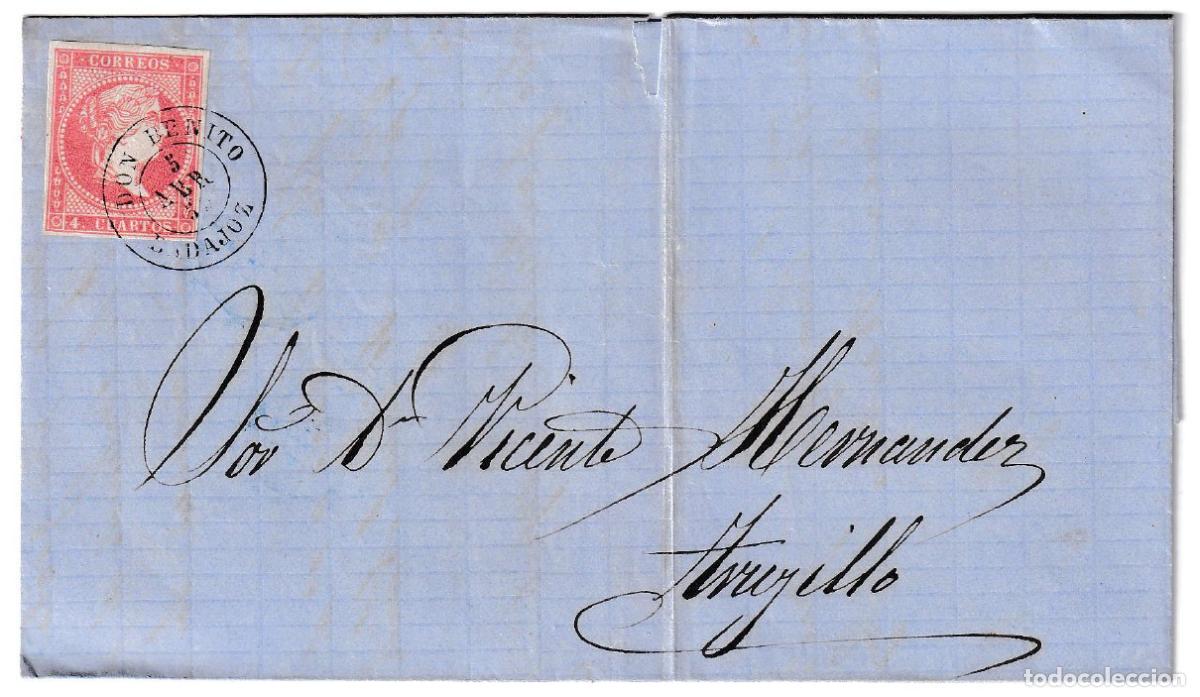 CORREOS
4 CUARTOS
DON BENITO
5
ABR
BADAJOZ
Sor. Dn. Vicente Hernandez
Trugillo
todocoleccion